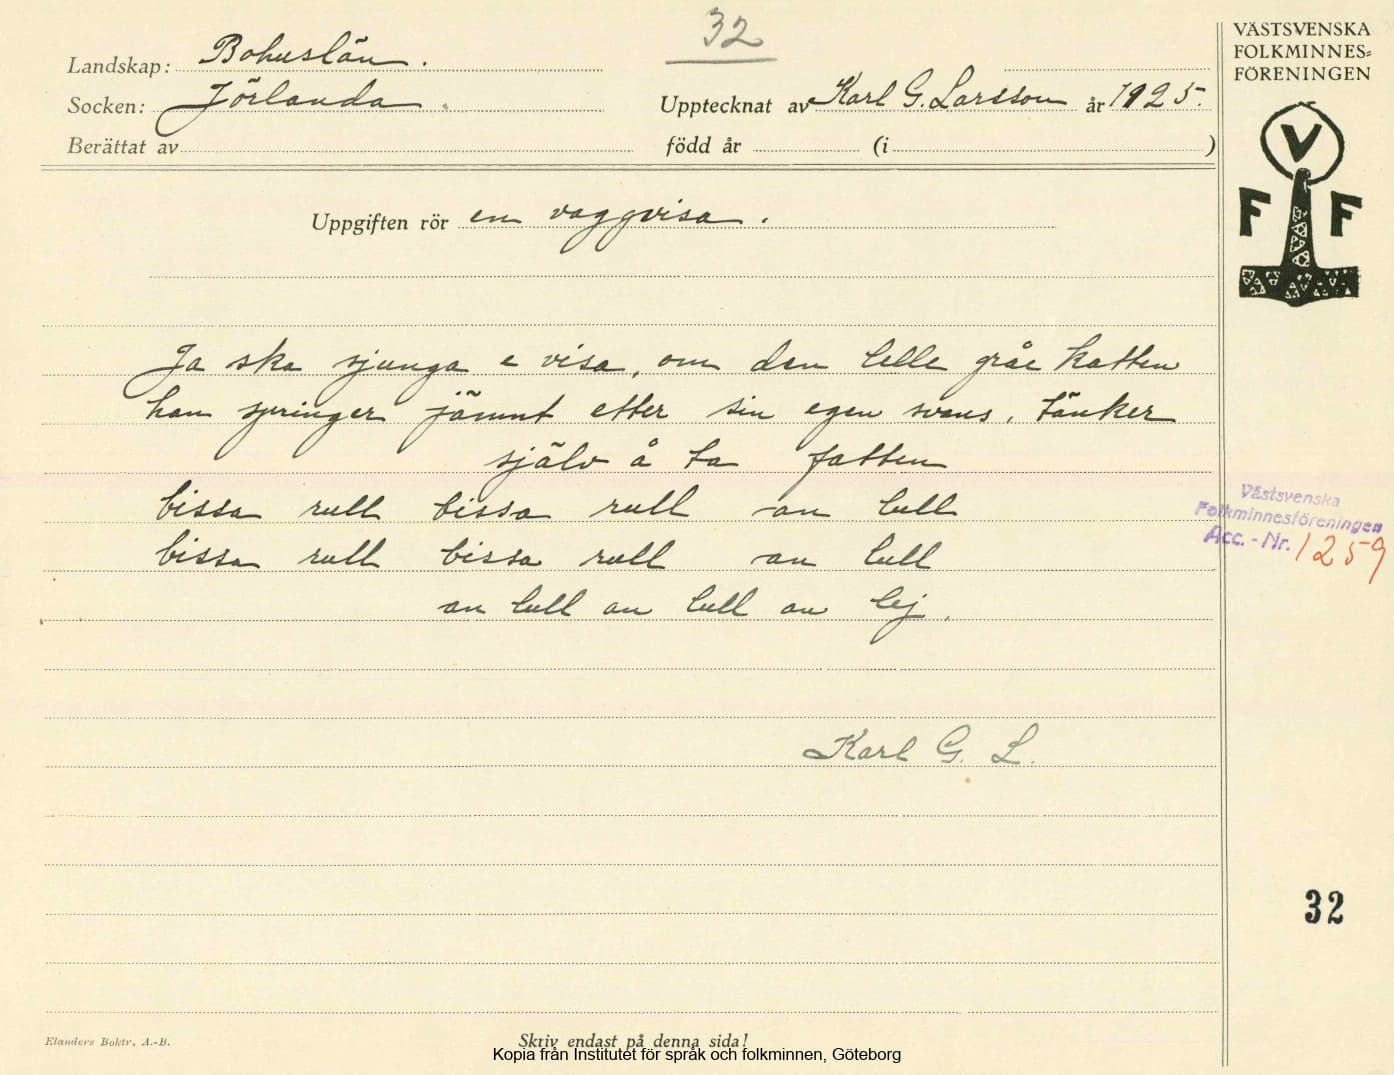 32
Landskap: Bohuslän.
Socken: Jörlanda
Upptecknat av Karl G. Larsson år 1925.
Berättat av
född år (i )
Uppgiften rör en vaggvisa.
Ja ska sjunga e visa, om den lelle gråe katten
han springer jämnt etter sin egen svans, tänker
själv å ta fatten
bissa rull bissa rull an lull
bissa rull bissa rull an lull
an lull an lull an lej.
Karl G. L.
VÄSTSVENSKA
FOLKMINNES-
FÖRENINGEN
V
F F
Västsvenska
Folkminnesföreningen
Acc. - Nr. 1259
32
Elanders Boktr. A.-B.
Skriv endast på denna sida!
Kopia från Institutet för språk och folkminnen, Göteborg